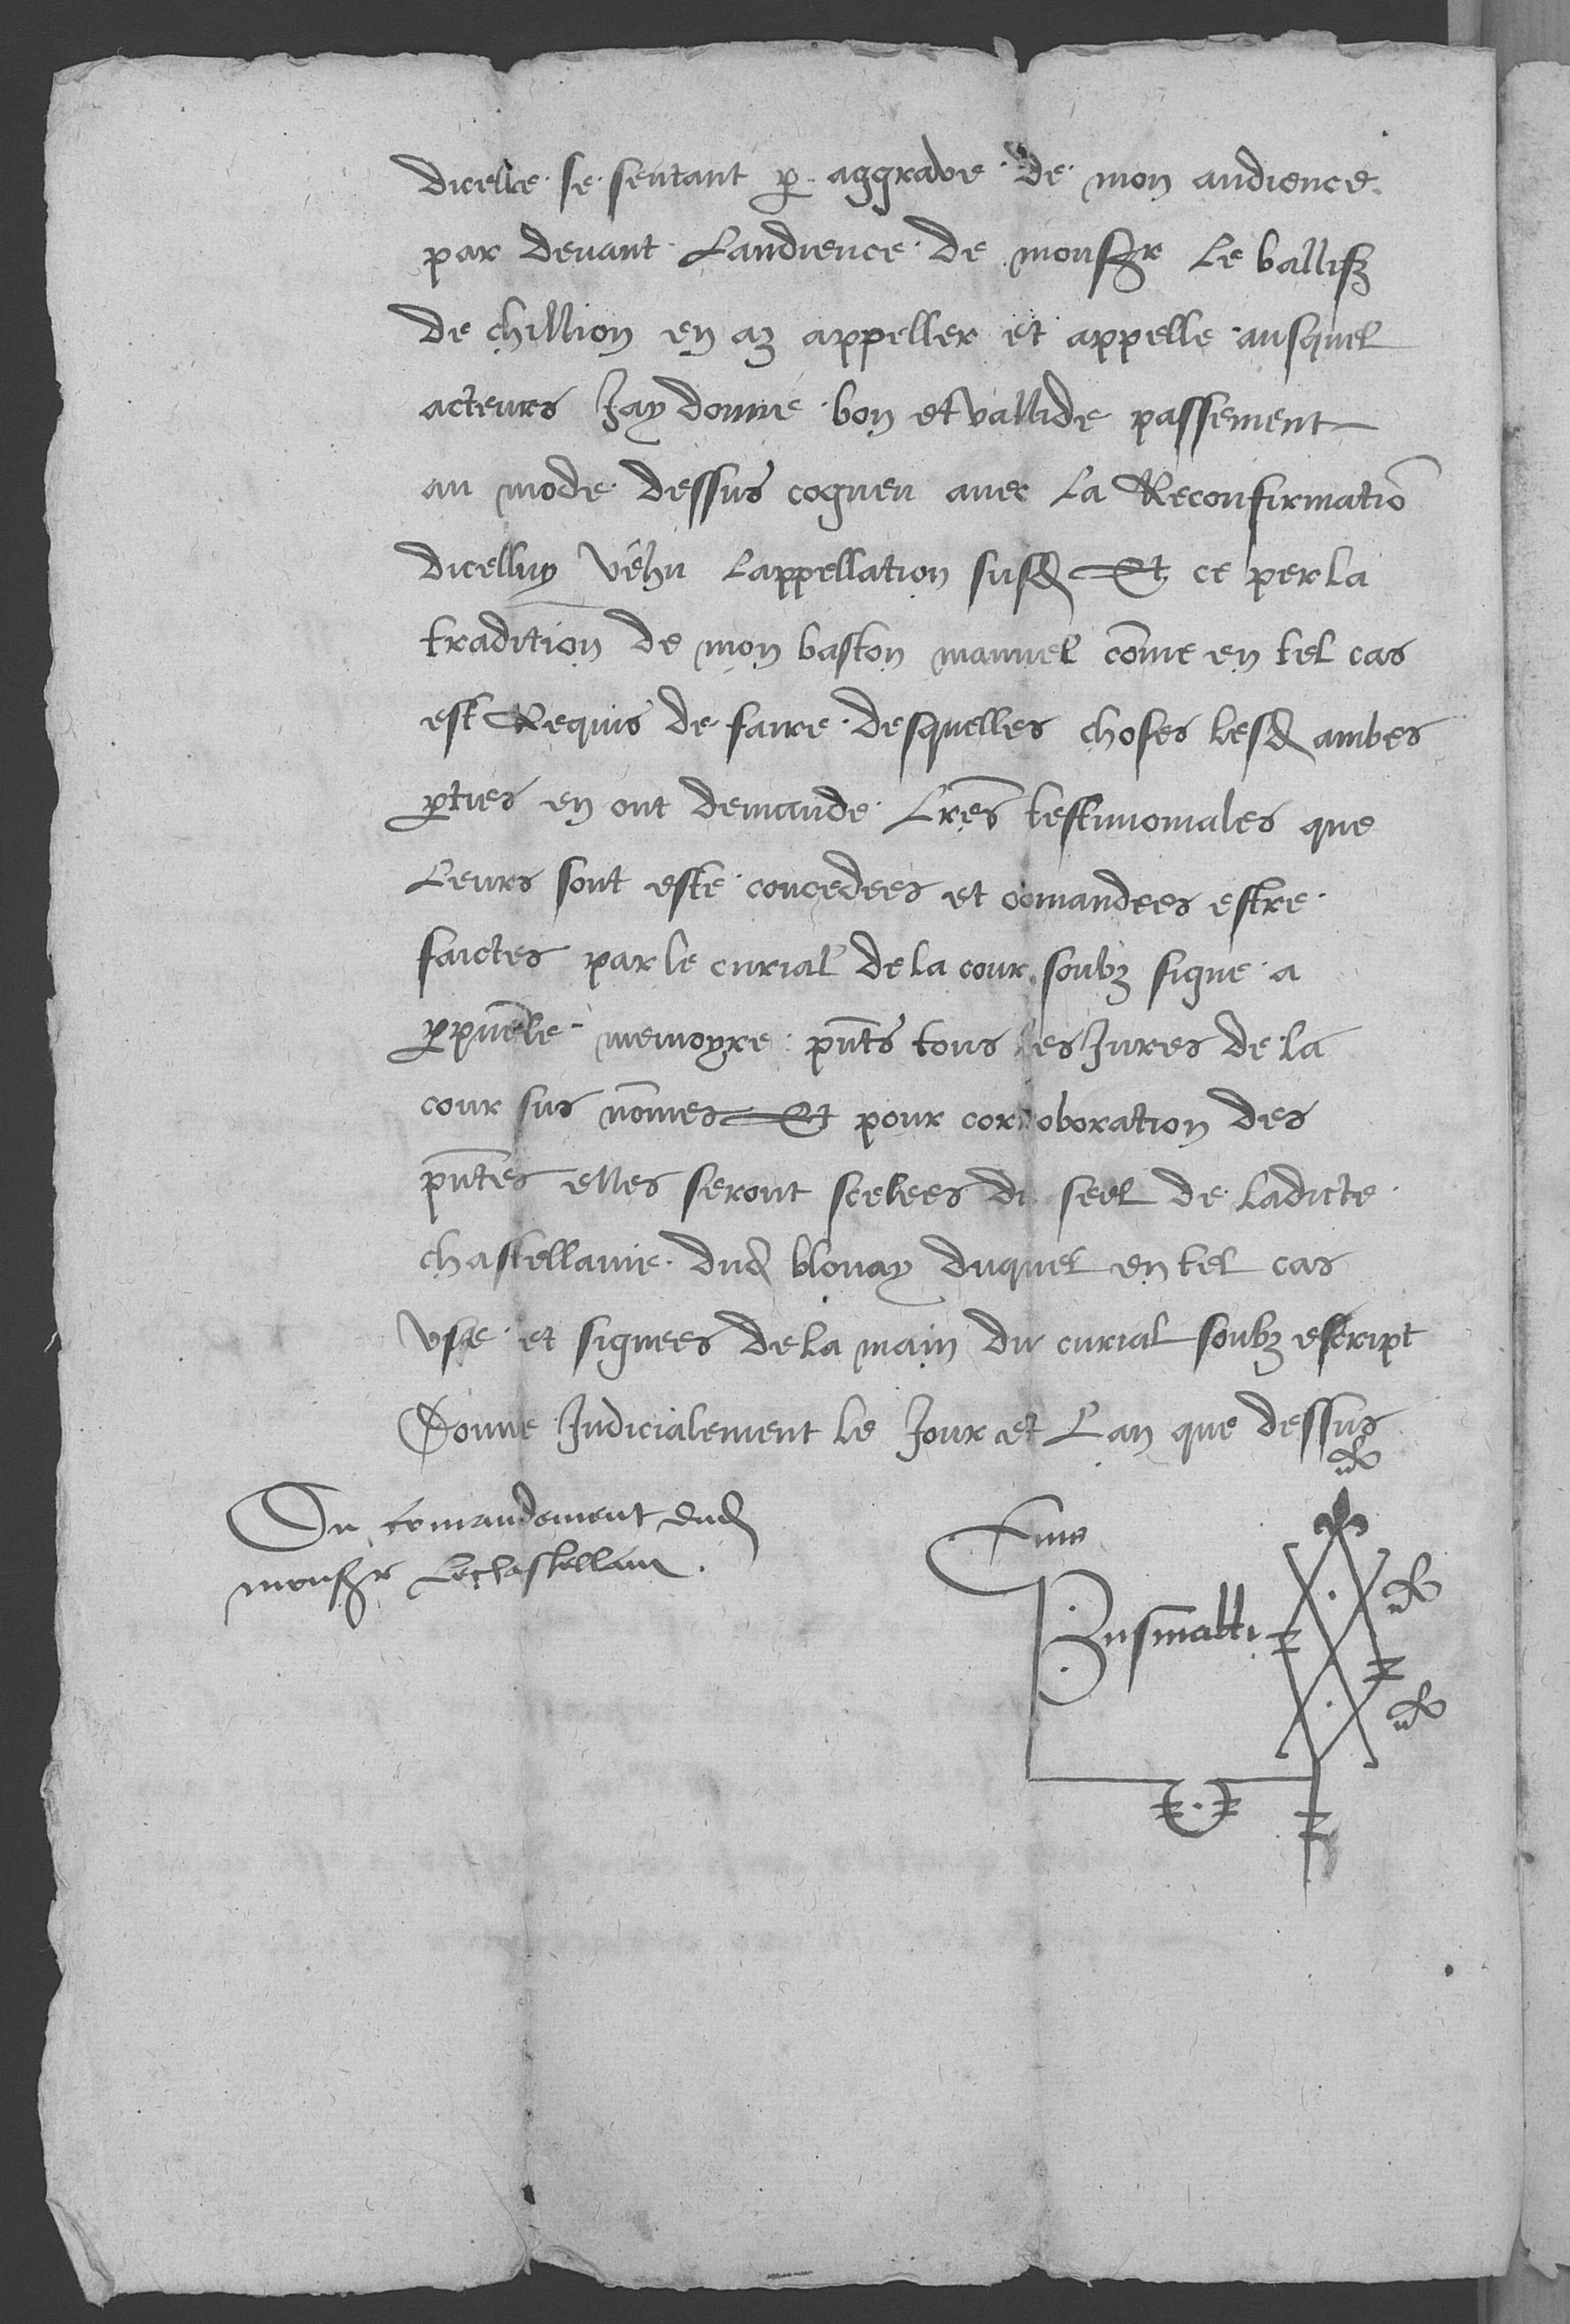 dicelle se sentant p aggrave de mon audience
par devant Laudience de monsgr Le ballifz
de chillion en az appeller et appelle ausquel
acteurs Jay donne bon et vallide passement
au mode dessus cogneu avec La Reconfirmatiō
dicelluy vehu Lappellation susd Et ce per la
tradition de mon baston manuel cōme en tel cas
est Requis de faire desquelles choses lesd ambes
pties en ont demande Lrēs testimoniales que
Leurs sont este concedees et comandees estre
faictes par le curial de la cour soubz signe a
ppuele memoyre pnts tous les Jures de la
cour sus nōmes Et pour corroboration des
pntes elles seront scelees du seel de ladicte
chastellanie dud blonay duquel en tel cas
Vse et signees de la main du curial soubz escript
Donne Judicialement le Jour et Lan que dessus
Du comandement dud
monsgr Le chastellain